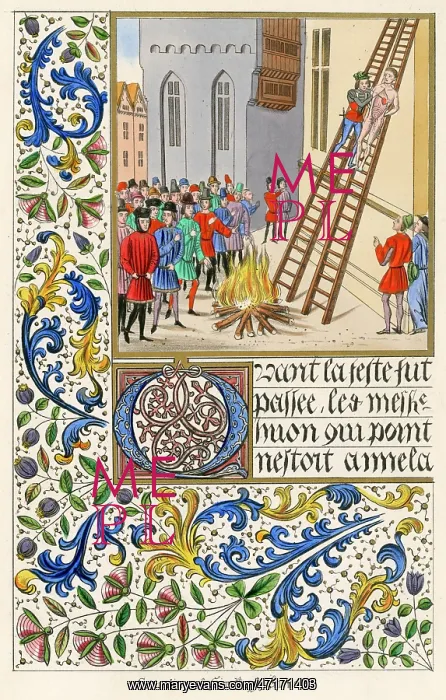 ME
PL
Quant la feste fut
passee, les messe
huon qui point
nestoit a mela
ME
PL
www.maryevans.com/47171403